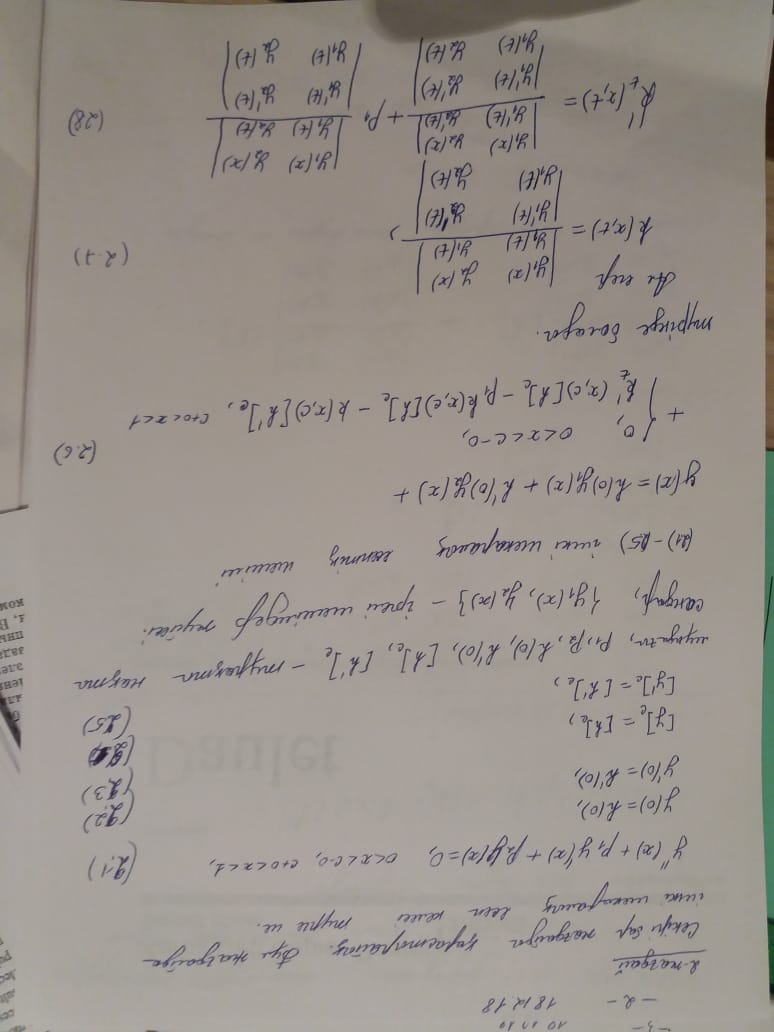 -3-
-2- 18.12.18
2-жағдай.
Секірі бар жағдайды қарастырайық. Бұл жағдайда
ішкі шекаралық есеп келесі түрге ие.
y''(x) + p₁ y'(x) + p₂y(x) = 0, 0<x<c-0, c+0<x<1, (2.1)
y(0) = h(0), (2.2)
y'(0) = h'(0), (2.3)
[y]_c = [h]_c,
[y']_c = [h']_c, (2.5)
мұндағы, p₁, p₂, h(0), h'(0), [h]_c, [h']_c – тұрақты нақты
сандар, {y₁(x), y₂(x)} – іргелі шешімдер жүйесі.
(2.1) – (2.5) ішкі шекаралық есептің шешімі
y(x) = h(0)y₁(x) + h'(0)y₂(x) +
+ { 0, 0<x<c-0,
k'_t(x,c)[h]_c – p₁k(x,c)[h]_c – k(x,c)[h']_c, c+0<x<1 (2.6)
түрінде болады.
Ал егер
|y₁(x) y₂(x)|
|y₂(t) y₁(t)|
k(x,t) = , (2.7)
|y₁'(t) y₂'(t)|
|y₁(t) y₂(t)|
|y₁(x) y₂(x)| |y₁(x) y₂(x)|
|y₁'(t) y₂'(t)| |y₁(t) y₂(t)|
k'_t(x,t) = + p₁ (2.8)
|y₁'(t) y₂'(t)| |y₁'(t) y₂'(t)|
|y₁(t) y₂(t)| |y₁(t) y₂(t)|
Daulet